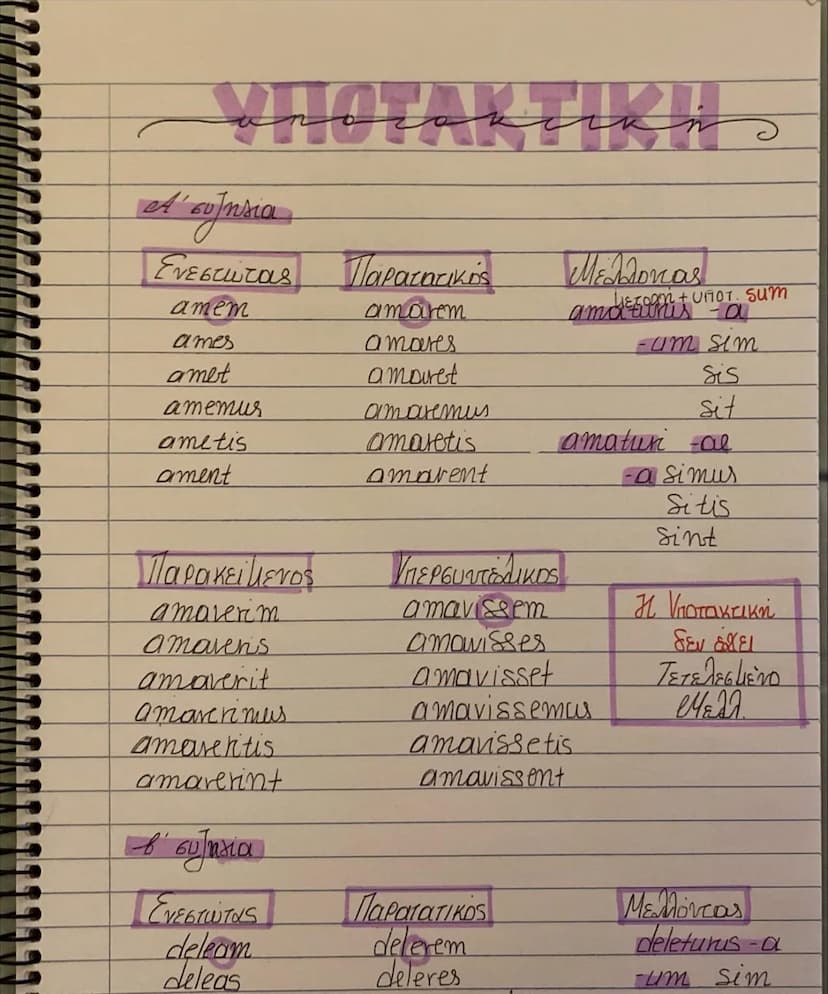 ΥΠΟΤΑΚΤΙΚΗ
υποτακτική
Α' συζηγία
Ενεστώτας Παρατατικός Μέλλοντας
μετοχή + υποτ. sum
amem amarem amaturus -a
ames amares -um sim
amet amaret sis
amemus amaremus sit
ametis amaretis amaturi -ae
ament amarent -a simus
sitis
sint
Παρακείμενος Υπερσυντέλικος
amaverim amavissem Η Υποτακτική
amaveris amavisses δεν έχει
amaverit amavisset Τετελεσμένο
amaverimus amavissemus Μελλ.
amaveritis amavissetis
amaverint amavissent
β' συζηγία
Ενεστώτας Παρατατικός Μελλόντας
deleam delerem deleturus -a
deleas deleres -um sim